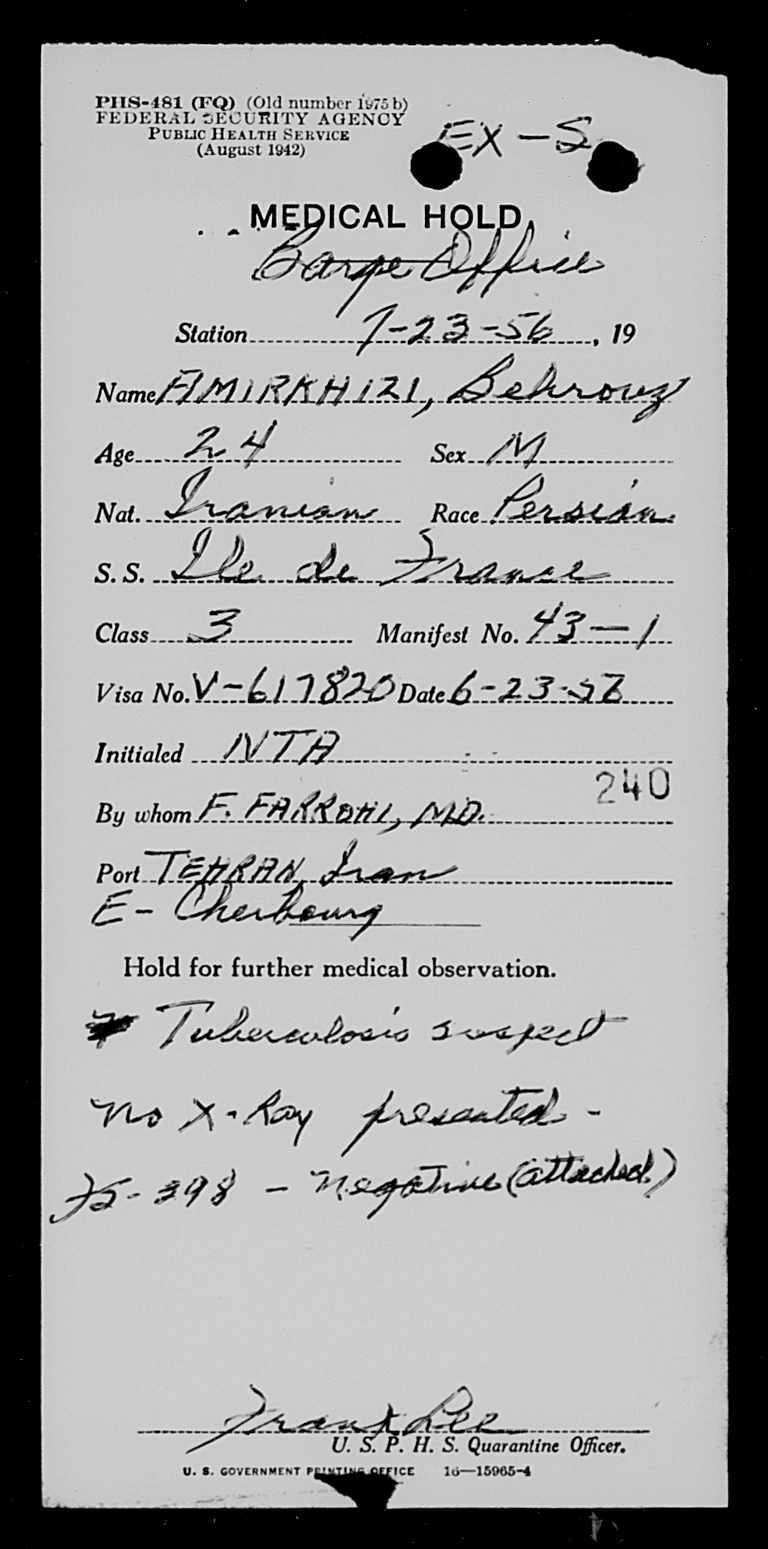 PHS-481 (FQ) (Old number 1975 b)
FEDERAL SECURITY AGENCY
PUBLIC HEALTH SERVICE
(August 1942)
EX-S
MEDICAL HOLD
Barge Office
Station 7-23-56, 19
Name AMIRKHIZI, Behrouz
Age 24 Sex M
Nat. Iranian Race Persian
S. S. Ile de France
Class 3 Manifest No. 43-1
Visa No. V-617820 Date 6-23-56
Initialed NTA
240
By whom F. FARROHI, MD.
Port TEHRAN, Iran
E- Cherbourg
Hold for further medical observation.
Tuberculosis suspect
No X-Ray presented -
FS-398 - Negative (attached)
Frank Lee
U. S. P. H. S. Quarantine Officer.
U. S. GOVERNMENT PRINTING OFFICE 16—15965-4